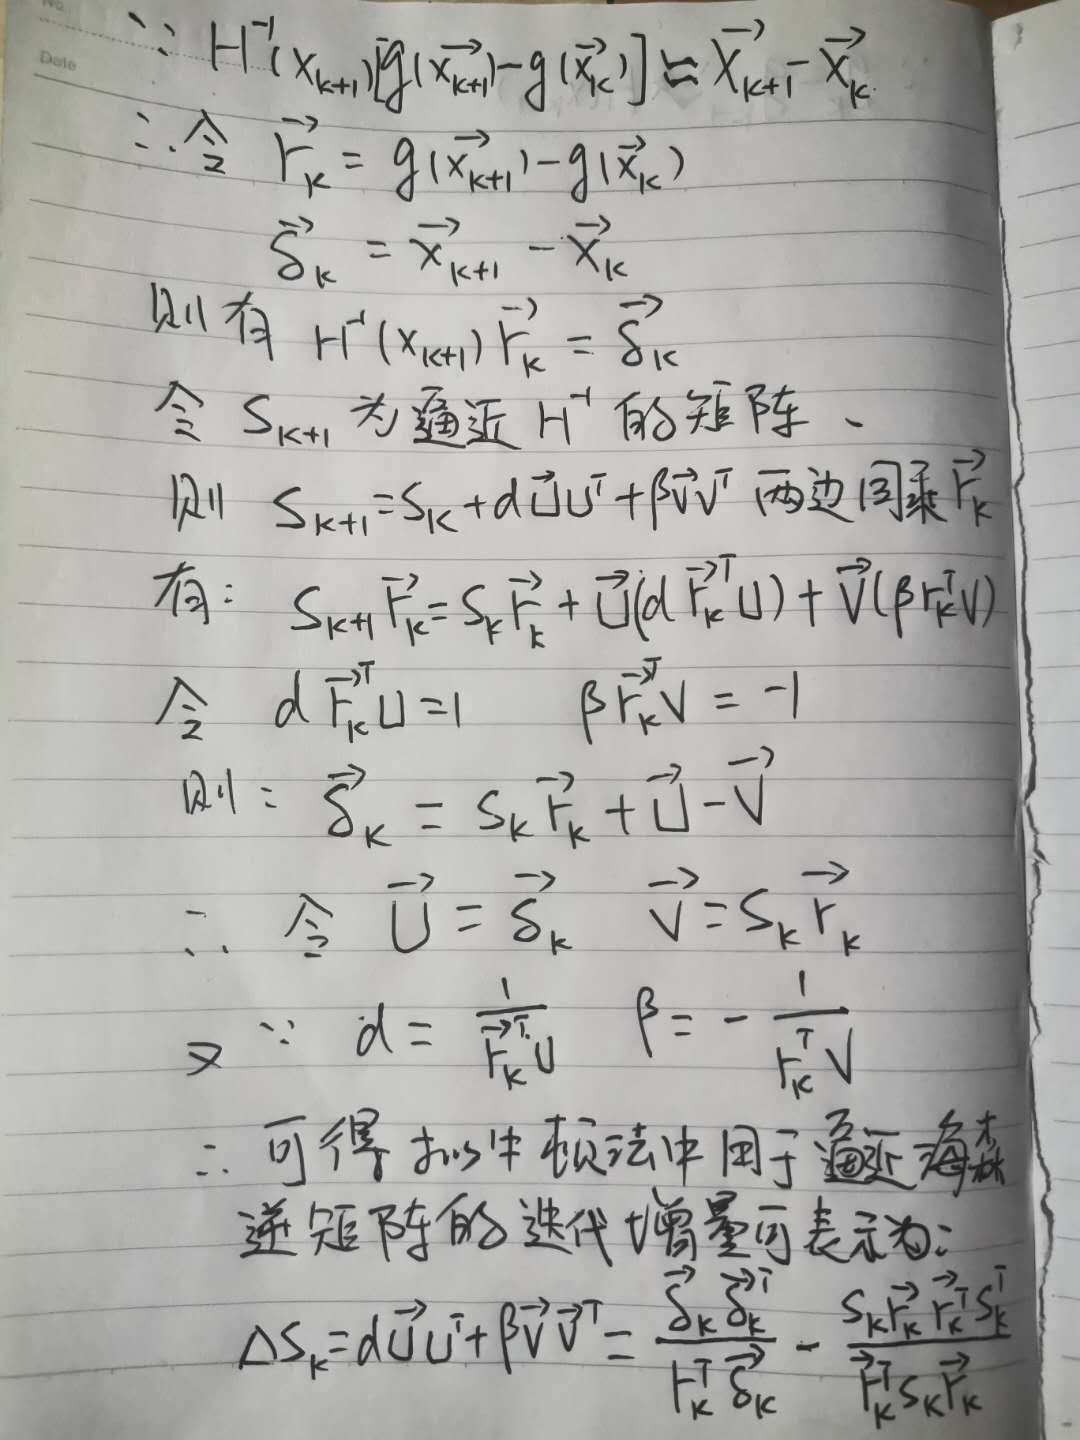 No.
Date
∵ H⁻¹(x_{k+1})[g(x⃗_{k+1})-g(x⃗_k)] ≈ x⃗_{k+1}-x⃗_k
∴ 令 r⃗_k = g(x⃗_{k+1})-g(x⃗_k)
δ⃗_k = x⃗_{k+1} - x⃗_k
则有 H⁻¹(x_{k+1}) r⃗_k = δ⃗_k
令 S_{k+1} 为逼近 H⁻¹ 的矩阵、
则 S_{k+1}=S_k+αU⃗Uᵀ+βV⃗Vᵀ 两边同乘 r⃗_k
有: S_{k+1}r⃗_k=S_k r⃗_k+U⃗(α r⃗_kᵀU)+V⃗(βr_kᵀV)
令 α r⃗_kᵀU=1 β r⃗_kᵀV = -1
则: δ⃗_k = S_k r⃗_k + U⃗ - V⃗
∴ 令 U⃗ = δ⃗_k V⃗ = S_k r⃗_k
又∵ α = 1/(r⃗_kᵀU) β = - 1/(r_kᵀV)
∴ 可得拟牛顿法中用于逼近海森
逆矩阵的迭代增量可表示为:
ΔS_k=αU⃗Uᵀ+βV⃗V⃗ᵀ = (δ⃗_k δ⃗_kᵀ)/(r_kᵀ δ⃗_k) - (S_k r⃗_k r⃗_kᵀ S_kᵀ)/(r⃗_kᵀ S_k r⃗_k)